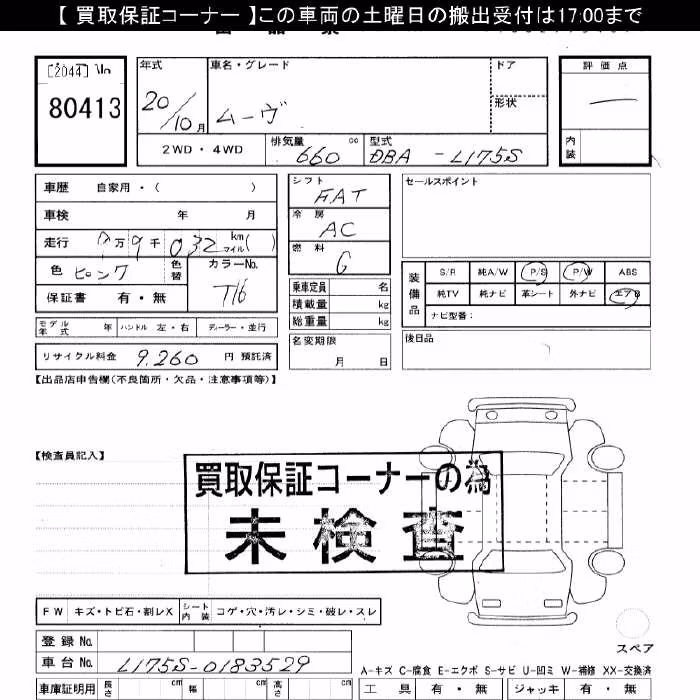 【 買取保証コーナー 】この車両の土曜日の搬出受付は17:00まで
[2044] No
80413
年式
車名・グレード
ドア
形状
評 価 点
20/10月
ムーヴ
内装
2WD ・ 4WD
排気量 660 cc
型式 DBA - L175S
車歴 自家用 ・ ( )
車検 年 月
走行 万 9千 032 km マイル ( )
色 ピンク
色替
カラーNo. T16
保証書 有 ・ 無
シフト FAT
冷房 AC
燃料 G
乗車定員 名
積載量 kg
総重量 kg
名変期限 月 日
セールスポイント
装備品
S/R 純A/W P/S P/W ABS
純TV 純ナビ 革シート 外ナビ エアB
ナビ型番：
後日品
モデル年式 年 ハンドル 左・右 ディーラー・並行
リサイクル料金 9,260 円 預託済
【出品店申告欄(不良箇所・欠品・注意事項等)】
【検査員記入】
買取保証コーナーの為
未検査
FW キズ・トビ石・割レX
シート内装 コゲ・穴・汚レ・シミ・破レ・スレ
登録 No.
車台 No. L175S-0183529
スペア
A-キズ C-腐食 E-エクボ S-サビ U-凹ミ W-補修 XX-交換済
車庫証明用 長さ cm 幅 cm 高さ cm
工 具 有 ・ 無 ジャッキ 有 ・ 無